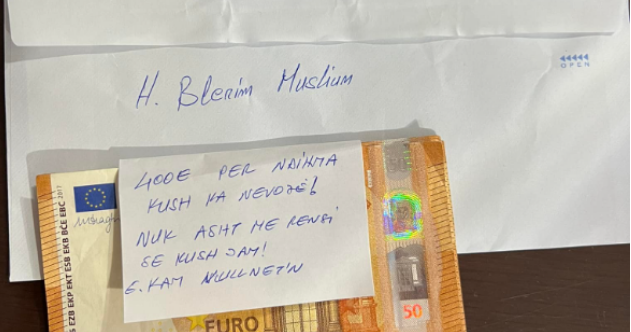 OPEN
H. Blerim Muslium
400E PER NDIHMA
KUSH KA NEVOJË!
NUK ASHT ME RENSI
SE KUSH JAM!
E. KAM
EZB EKP EKT ESB EKB BCE EBC 2017
EURO
50